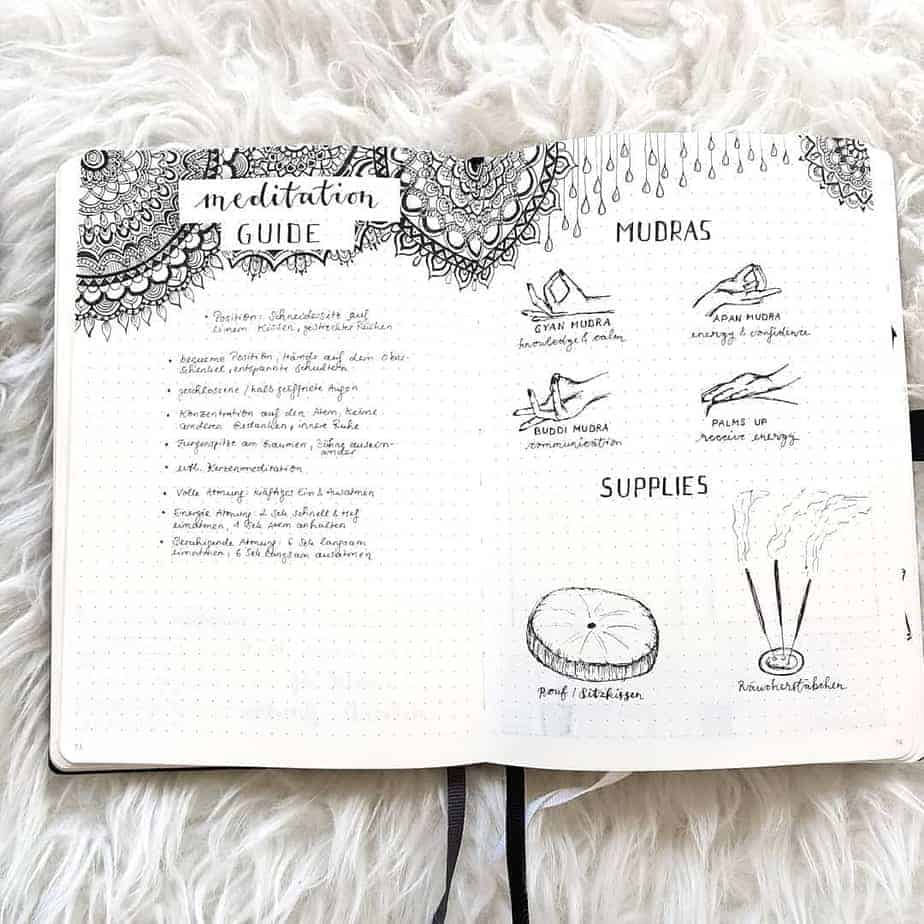 meditation
GUIDE
• Position: Schneidersitz auf
einem Kissen, gestreckter Rücken
• bequeme Position, Hände auf dem Ober-
schenkel, entspannte Schultern
• geschlossene / halb geöffnete Augen
• Konzentration auf den Atem, keine
anderen Gedanken, innere Ruhe
• Zungenspitze am Gaumen, Zähne ausein-
ander
• evtl. Kerzenmeditation
• Volle Atmung: kräftiges Ein & Ausatmen
• Energie Atmung: 2 Sek schnell & tief
einatmen, 1 Sek Atem anhalten
• Beruhigende Atmung: 6 Sek langsam
einatmen, 6 Sek langsam ausatmen
73
MUDRAS
GYAN MUDRA
knowledge & calm
APAN MUDRA
energy & confidence
BUDDI MUDRA
communication
PALMS UP
receive energy
SUPPLIES
Pouf / Sitzkissen
Räucherstäbchen